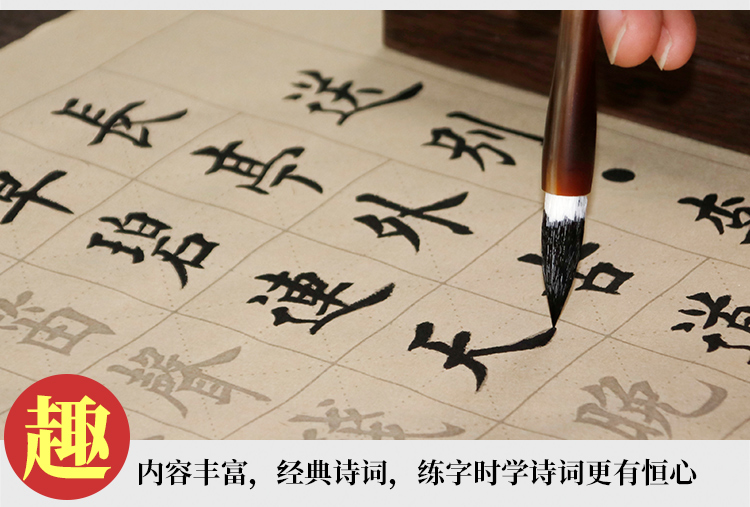 送别·李
長亭外古道
草碧連天晚
笛聲
趣
内容丰富，经典诗词，练字时学诗词更有恒心